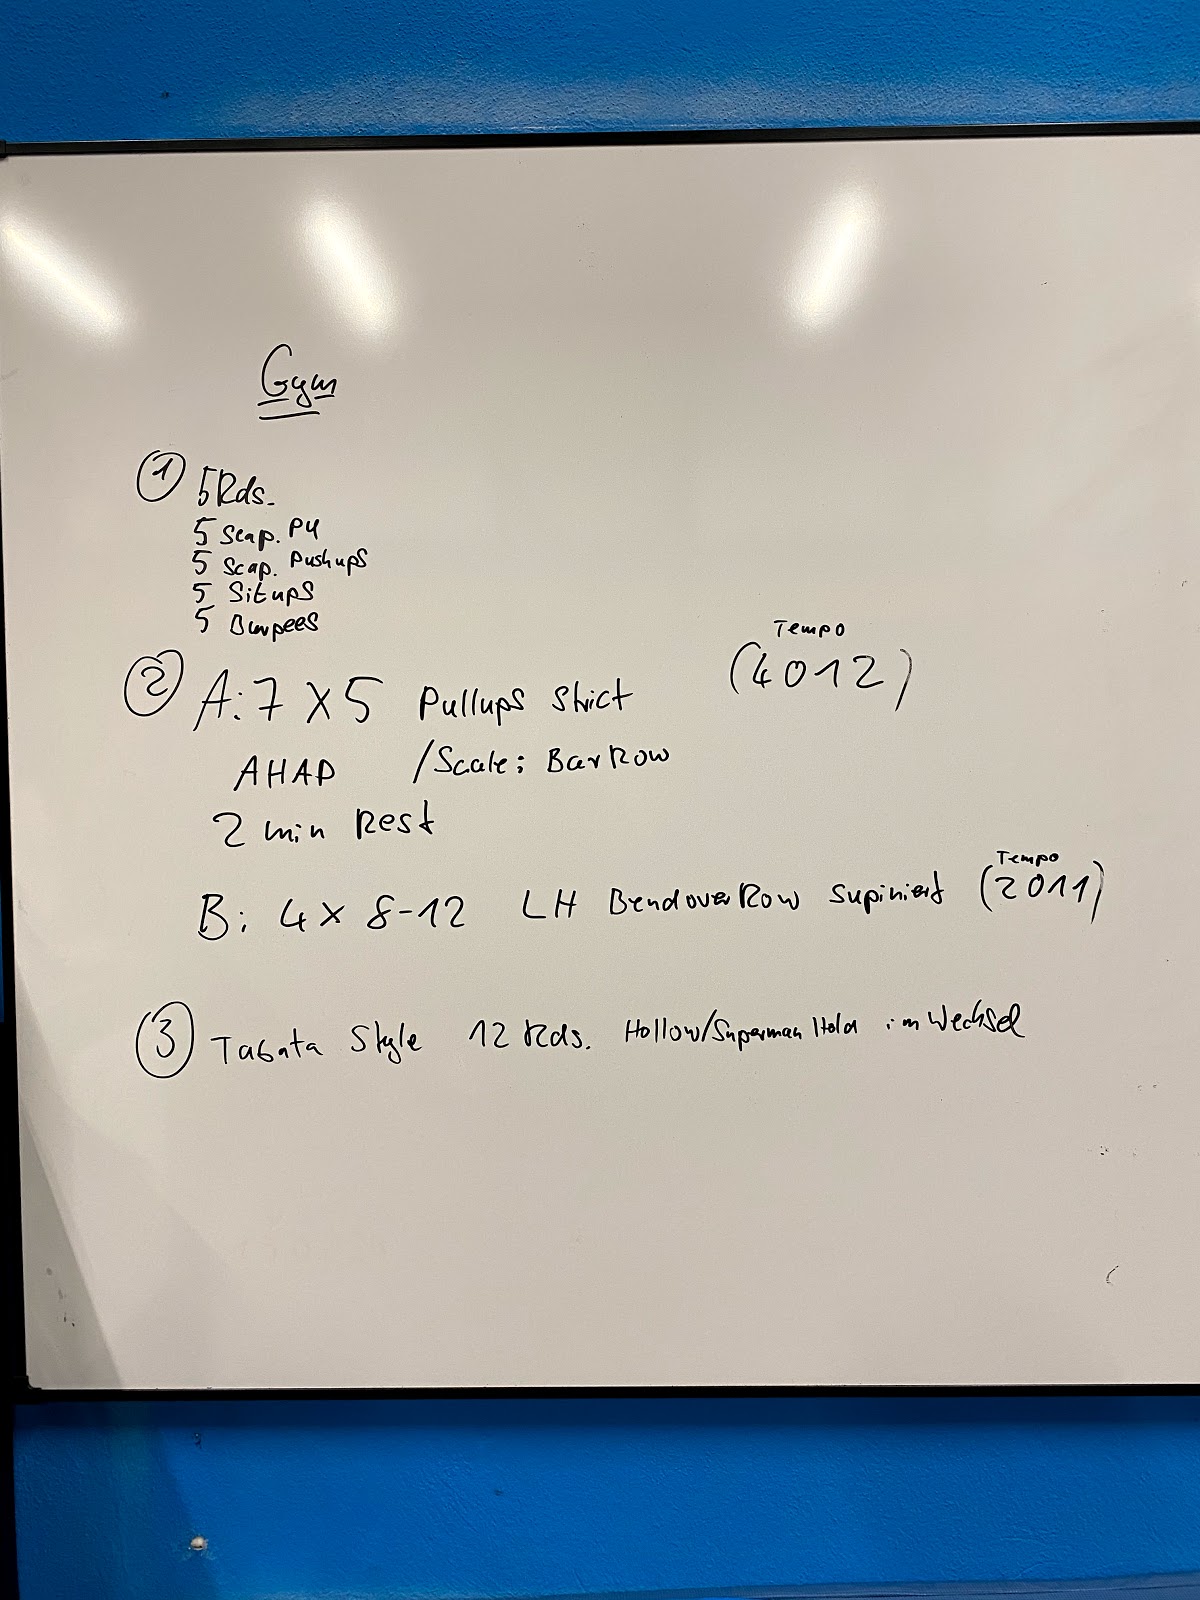 Gym
① 5 Rds.
5 Scap. PU
5 Scap. Pushups
5 Situps
5 Burpees
Tempo
② A: 7 X 5 Pullups Strict (4012)
AHAP /Scale: Bar Row
2 min Rest
Tempo
B: 4 x 8-12 LH Bendover Row Supiniert (2011)
③ Tabata Style 12 Rds. Hollow/Superman Hold im Wechsel